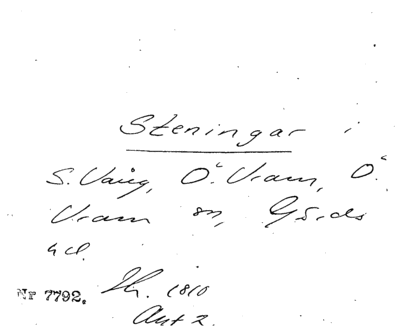 Steningar i
S. Vång, Ö. Vram, Ö.
Vram sn, Gärds
hd.
Nr 7792. Th. 1810
Aut 2.